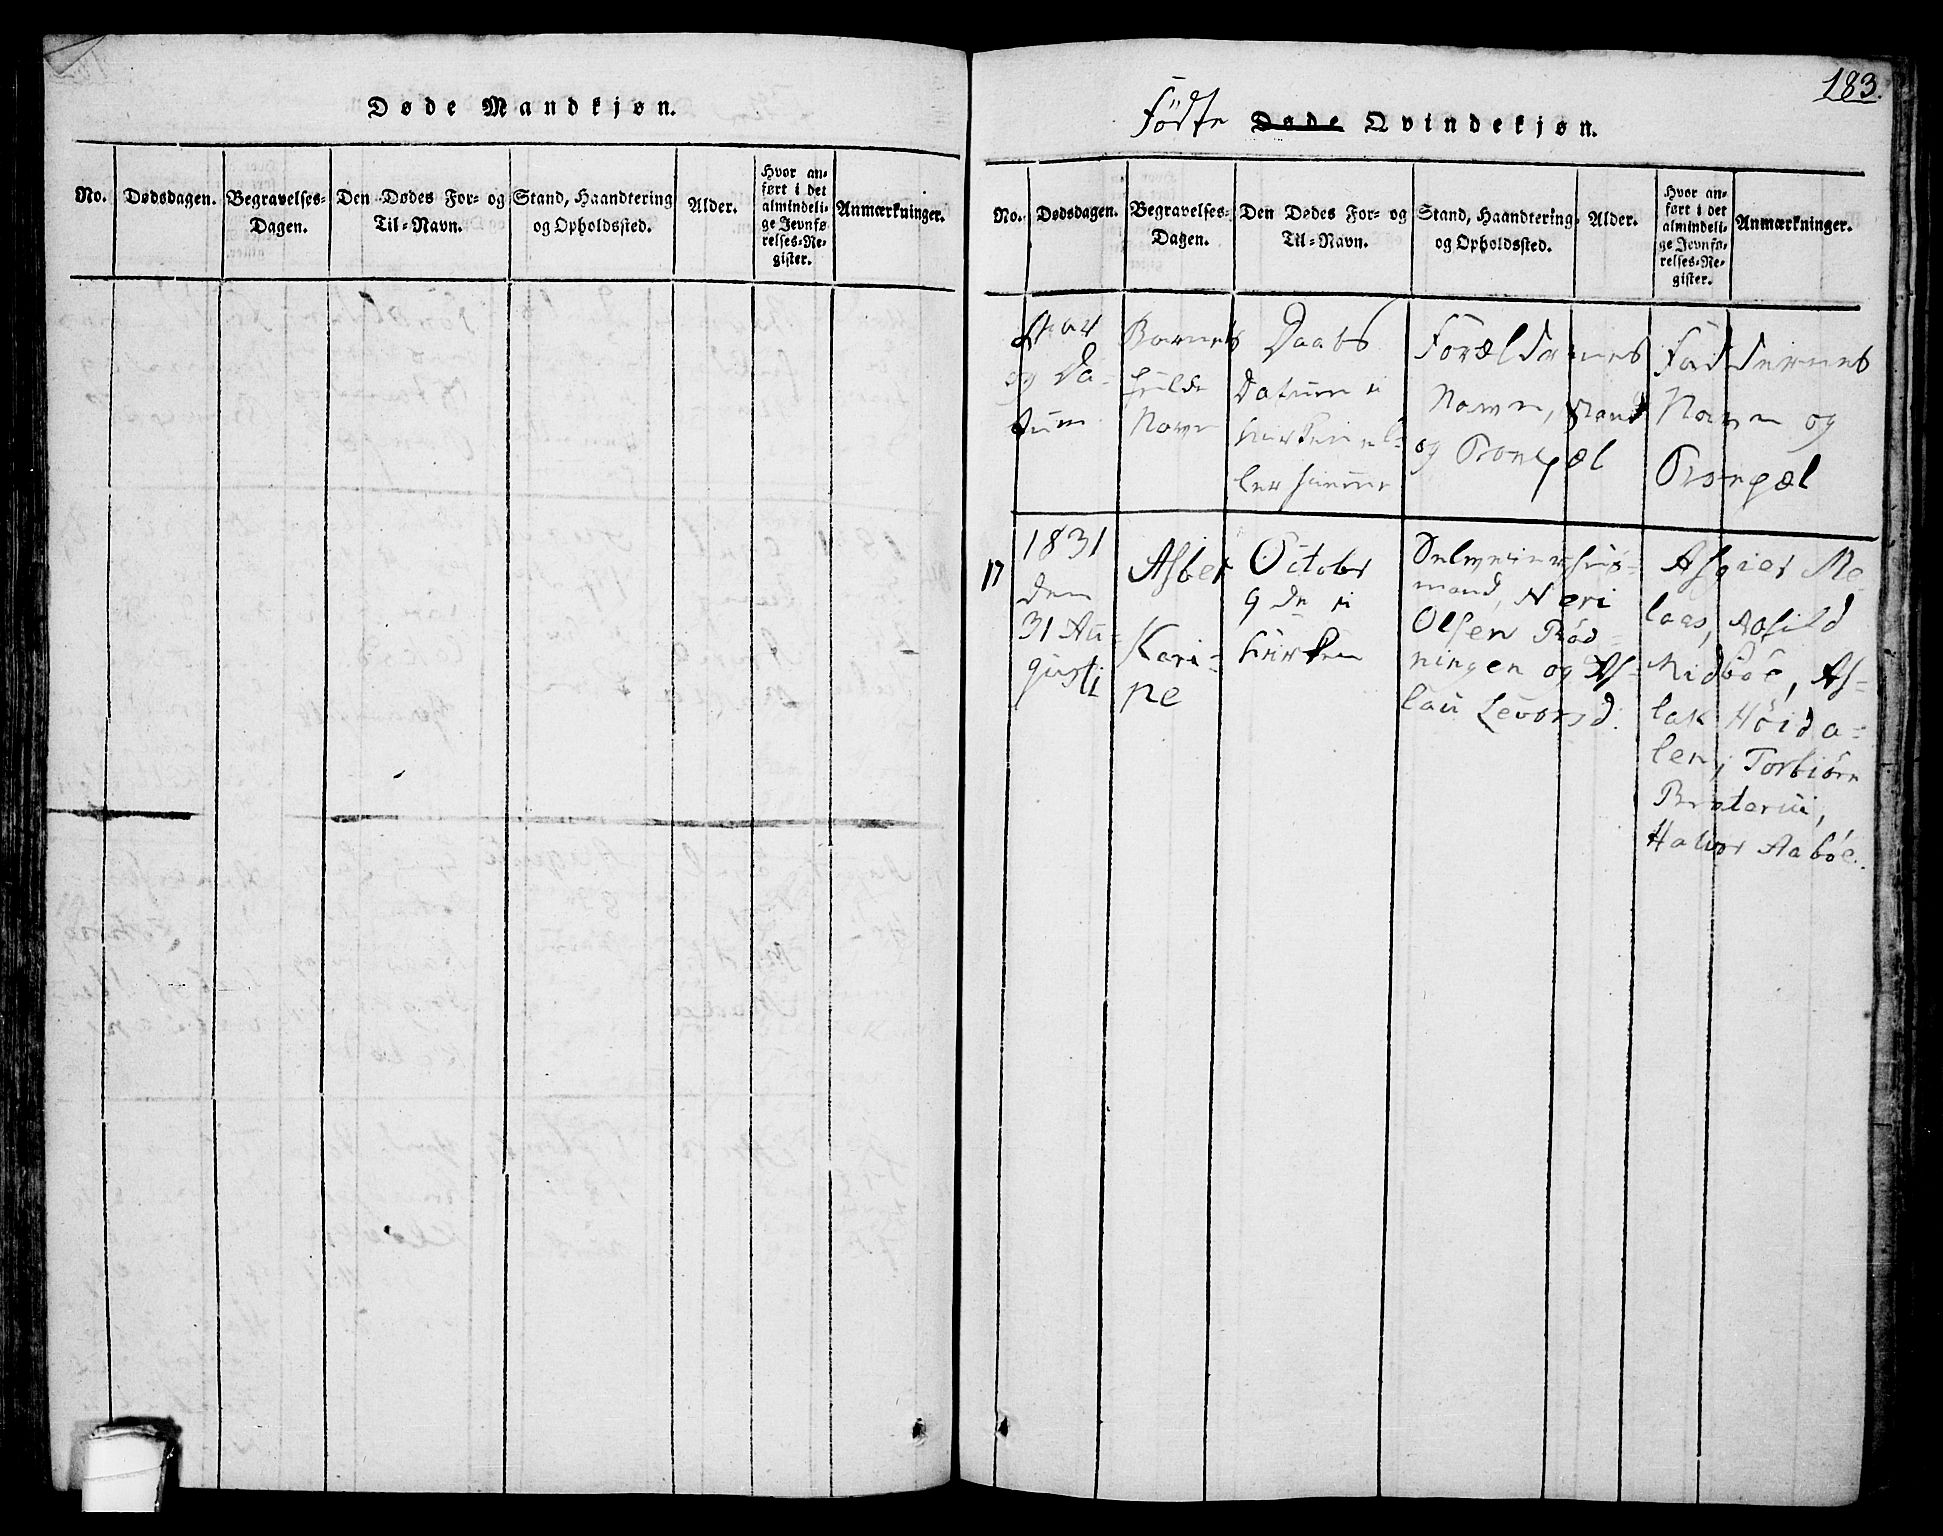 Døde Mandkjøn.
No.
Dødsdagen.
Begravelses-
Dagen.
Den Dødes For- og
Til-Navn.
Stand, Haandtering
og Opholdssted.
Alder.
Hvor an-
ført i det
almindeli-
ge Jevnfø-
relses-Re-
gister.
Anmærkninger.
183.
Födte Døde Qvindekjøn.
No.
Dødsdagen.
Begravelses-
Dagen.
Den Dødes For- og
Til-Navn.
Stand, Haandtering
og Opholdssted.
Alder.
Hvor an-
ført i det
almindeli-
ge Jevnfø-
relses-Re-
gister.
Anmærkninger.
Aar
og Da-
tum
Barnets
fulde
Navn
Daabs
Datum i
kirken el-
ler hiemme
Forældrenes
Navn, Stand
og Bonpæl
Faddernes
Navn og
Bonpæl
17
1831
den
31 Au-
gusti
Asber
Kari-
ne
October
9 de i
kirken
Selveierhus-
mand, Neri
Olsen Röd-
ningen og As-
lau Levorsd.
Asgier Me-
laas, Aasild
Midböe, As-
lak Höida-
len, Torbiörn
Bratarui,
Halvor Aaböe.